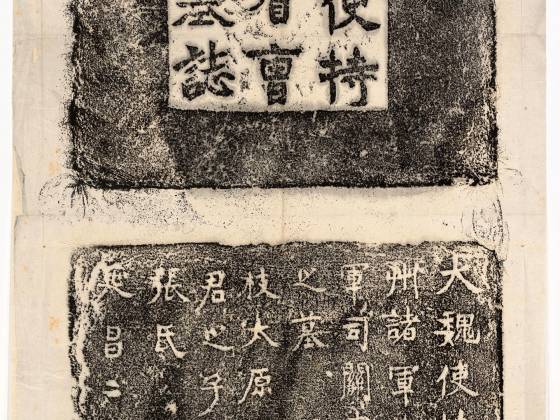 使持
曹
墓誌
大魏使
州諸軍
軍司關
之墓
枝太原
君之子
張氏
延昌二